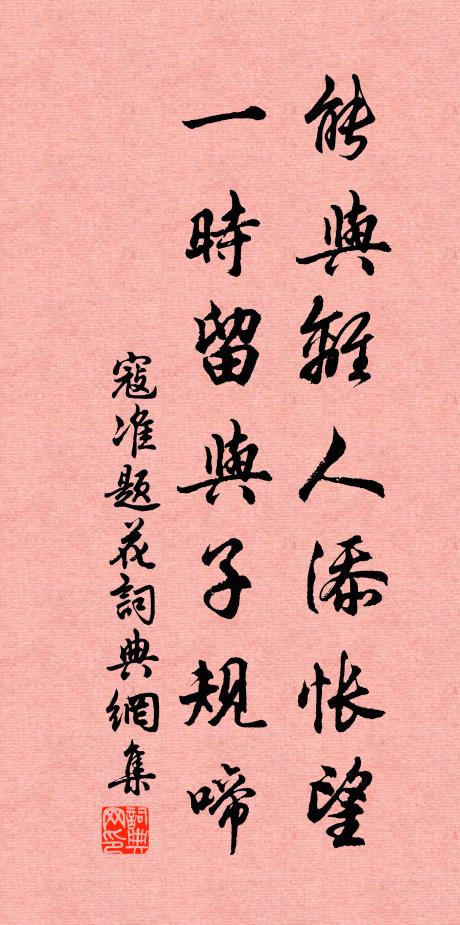 能與離人添悵望
一時留與子規啼
寇准題花詞典網集
詞典网印